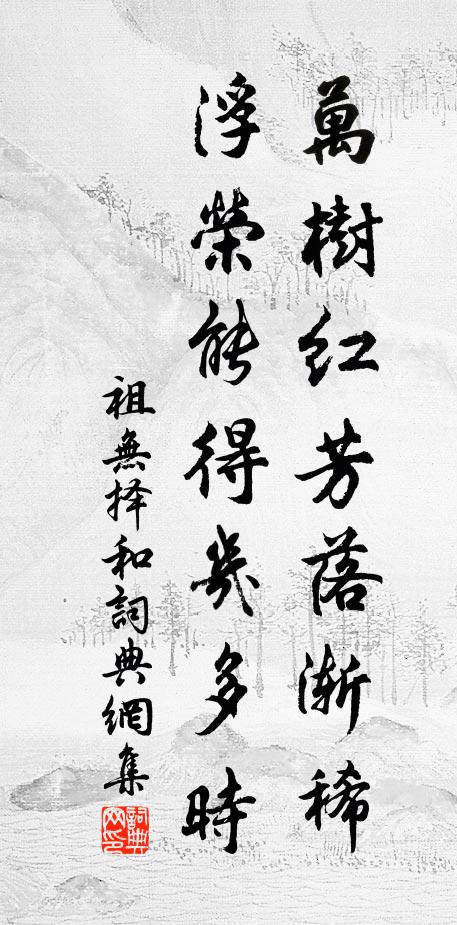 萬樹红芳落漸稀
浮榮能得幾多時
祖無择和詞典網集
詞典
网印